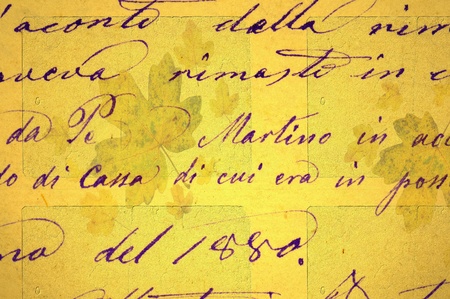 l'aconto dalla rim
aveva rimasti in c
da Pe Martino in acc
do di Cassa di cui era in poss
no del 1880.